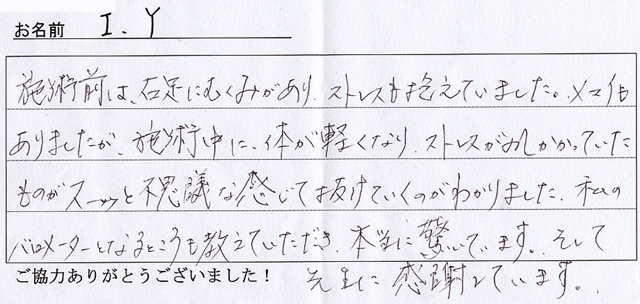 お名前 I.Y
施術前は、右足にむくみがあり、ストレスも抱えていました。メマイも
ありましたが、施術中に、体が軽くなり、ストレスがおしかかっていた
ものがスーッと不思議な感じで抜けていくのがわかりました。私の
バロメーターとなるところも教えていただき、本当に驚いています。そして
ご協力ありがとうございました! 先生に感謝しています。